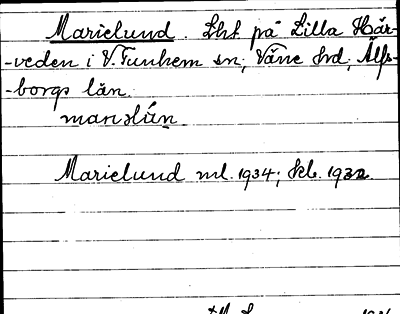 Marielund. Lht på Lilla Här-
-veden i V. Tunhem sn, Väne hd, Älfs-
-borgs län.
Marielund ml. 1934; Skb. 1932